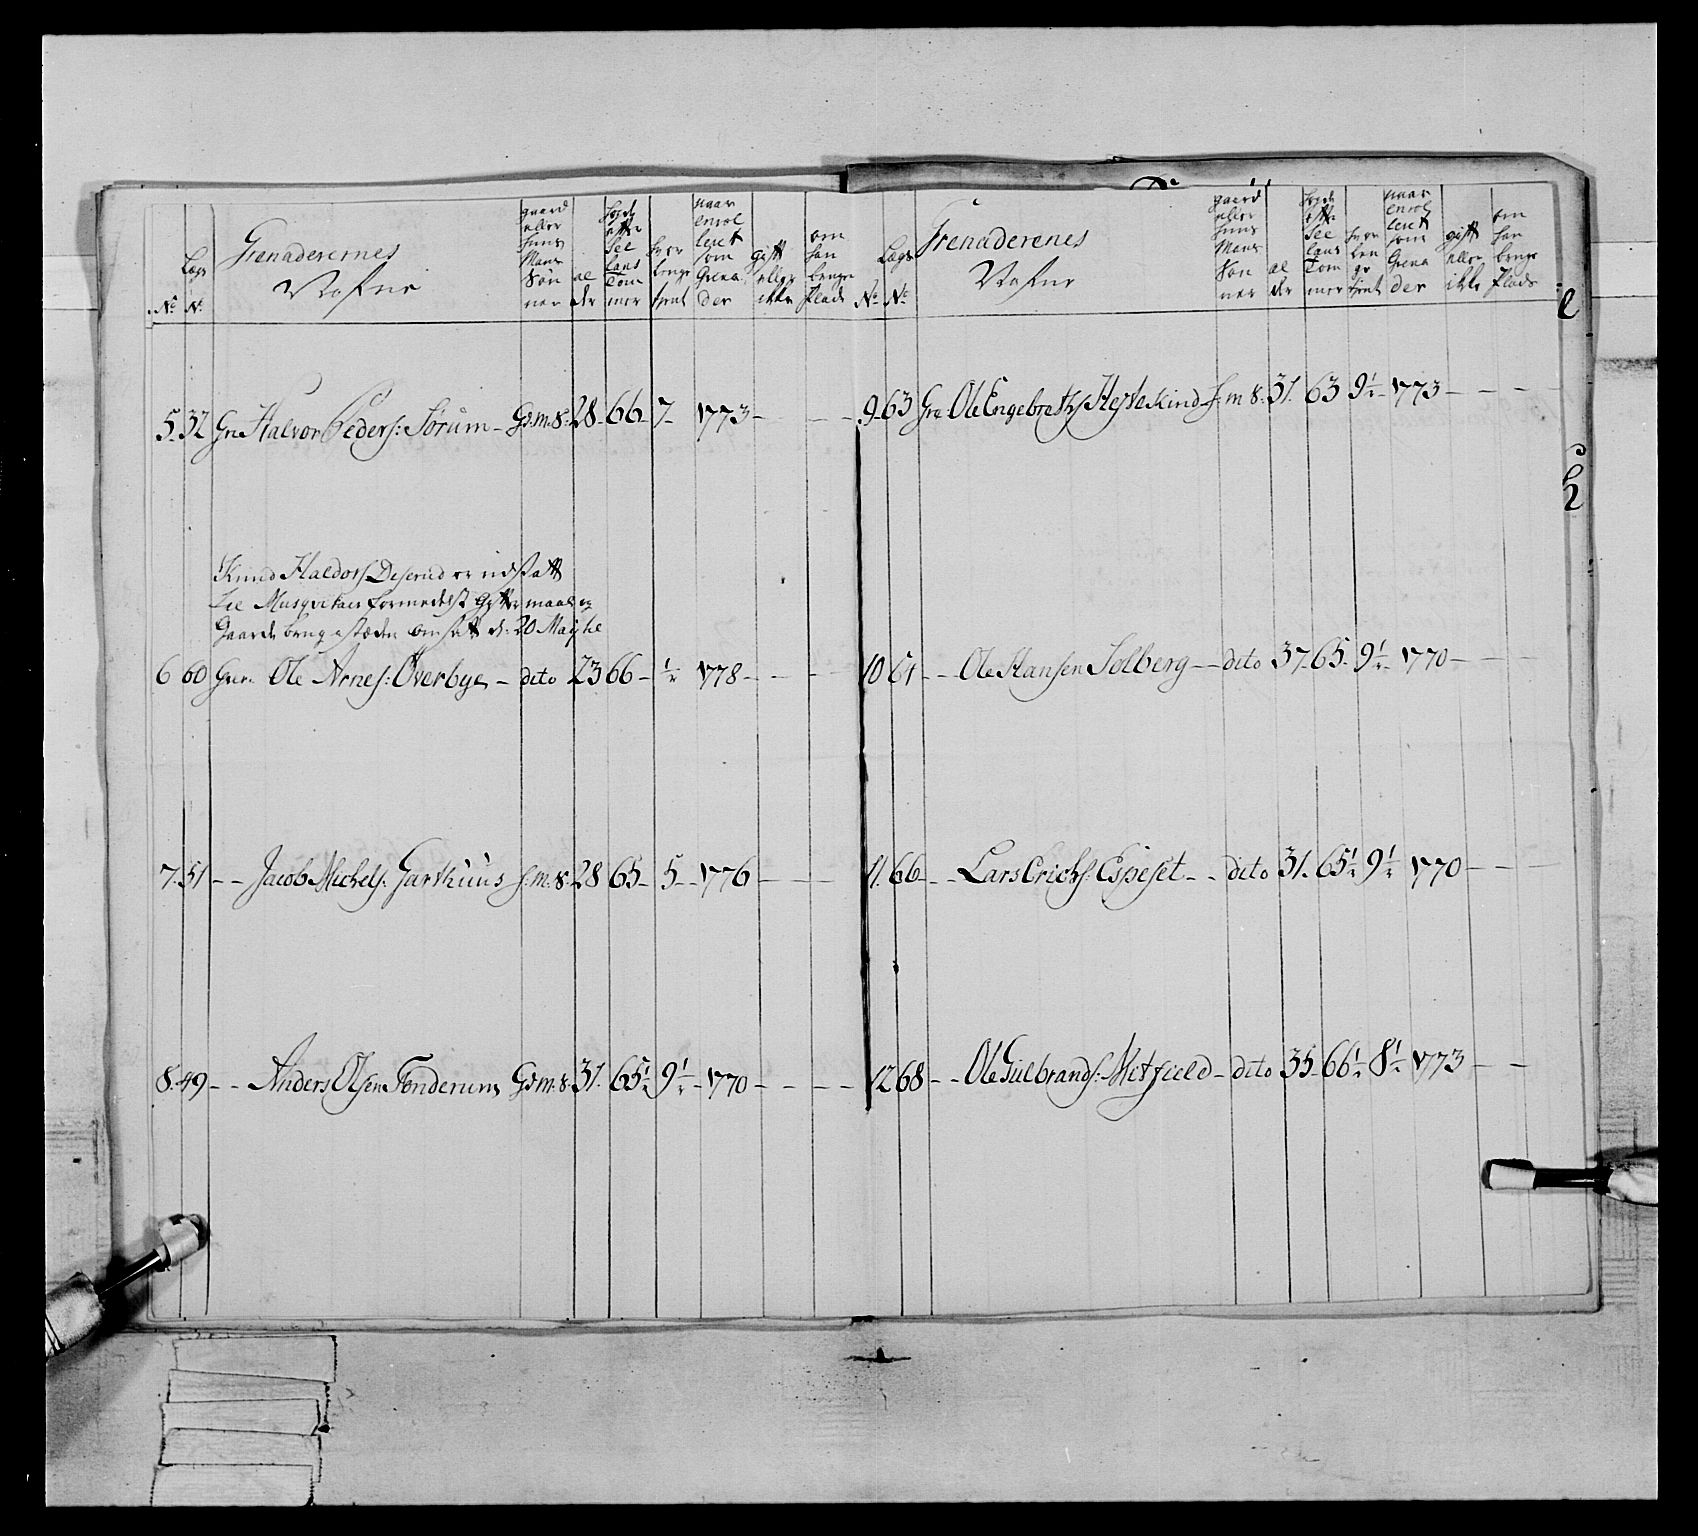 No
Legs
No
Grenaderernes
Nafne
gaard
eller
huus
Mans
Søn
ner
al
der
høyde
efter
See
lans
Tom
mer
hvor
lenge
tient
naar
enrol
lert
som
Grena
der
gift
eller
ikke
om
han
bruger
Plads
5. 37 Gre Halvor Peders: Sørum - Gd: m: S: 28 - 66 - 7 - 1773 - - -
Knud Haldors Deserud er udsatt
til Musqvetair formedelst Gifftermaal og
Gaards brug isteden omsatt d: 20 Maij he
6 60 Gren Ole Arnes: Overbye - dito 23 66 - ½ 1778 - - -
7. 51 - - Jacob Michels: Garthuus h: m: S: 28 65 - 5 - 1776 - - -
8. 49 - - Anders Olsen Tonderum Gd: m: S: 31. 65½ 9½ - 1770 - - -
No
Legs
No
Grenaderenes
Nafne
gaard
eller
huus
Mans
Søn
ner
al
der
høyde
efter
See
lans
Tom
mer
hvor
len
ge
tient
naar
enrol
lert
som
Grena
der
gift
eller
ikke
om
han
bruge
Plads
9. 63 Gre Ole Engebreths Hesteskind h: m S: 31. 63 9½ - 1773 - - -
10 61 - - Ole Hansen Solberg - dito 37 - 65 - 9½ - 1770 - - -
11. 66 - - Lars Erichs: Espeset - - dito 31. 65½ 9½ 1770 - - -
12 68 - - Ole Gulbrands: Mitfield - dito 35 - 66½ 8½ 1773 - - -